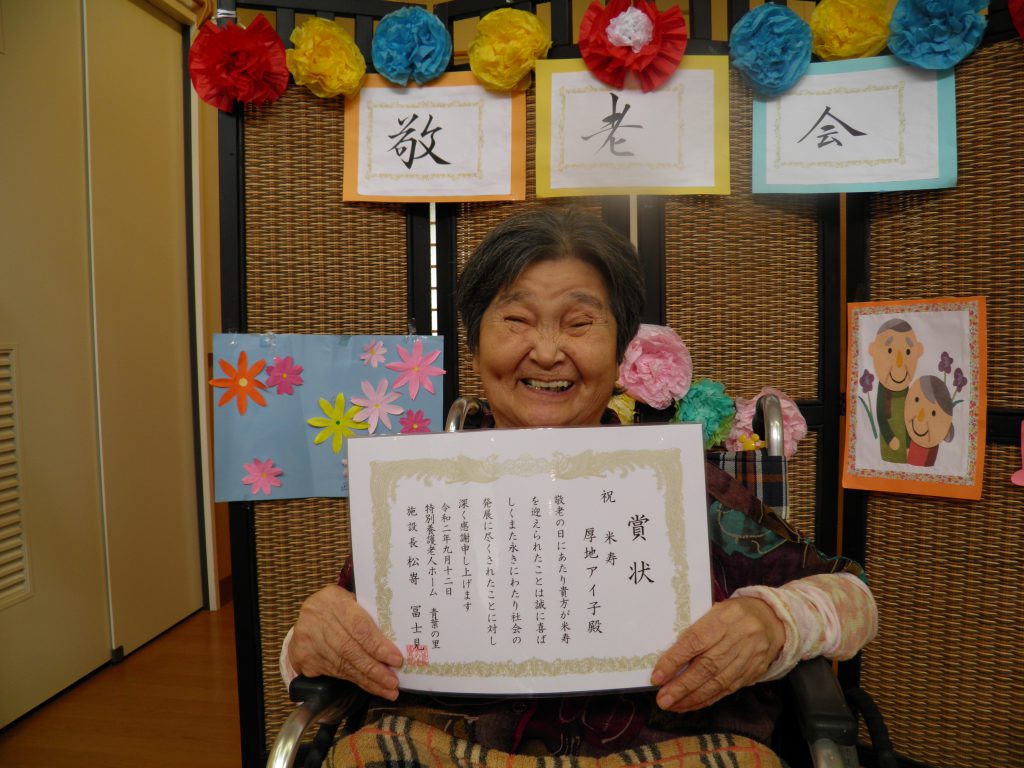 敬老会
賞状
祝 米寿
厚地アイ子殿
敬老の日にあたり貴方が米寿
を迎えられたことは誠に喜ば
しくまた永きにわたり社会の
発展に尽くされたことに対し
深く感謝申し上げます
令和二年九月十二日
特別養護老人ホーム 青葉の里
施設長 松嵜 冨士見